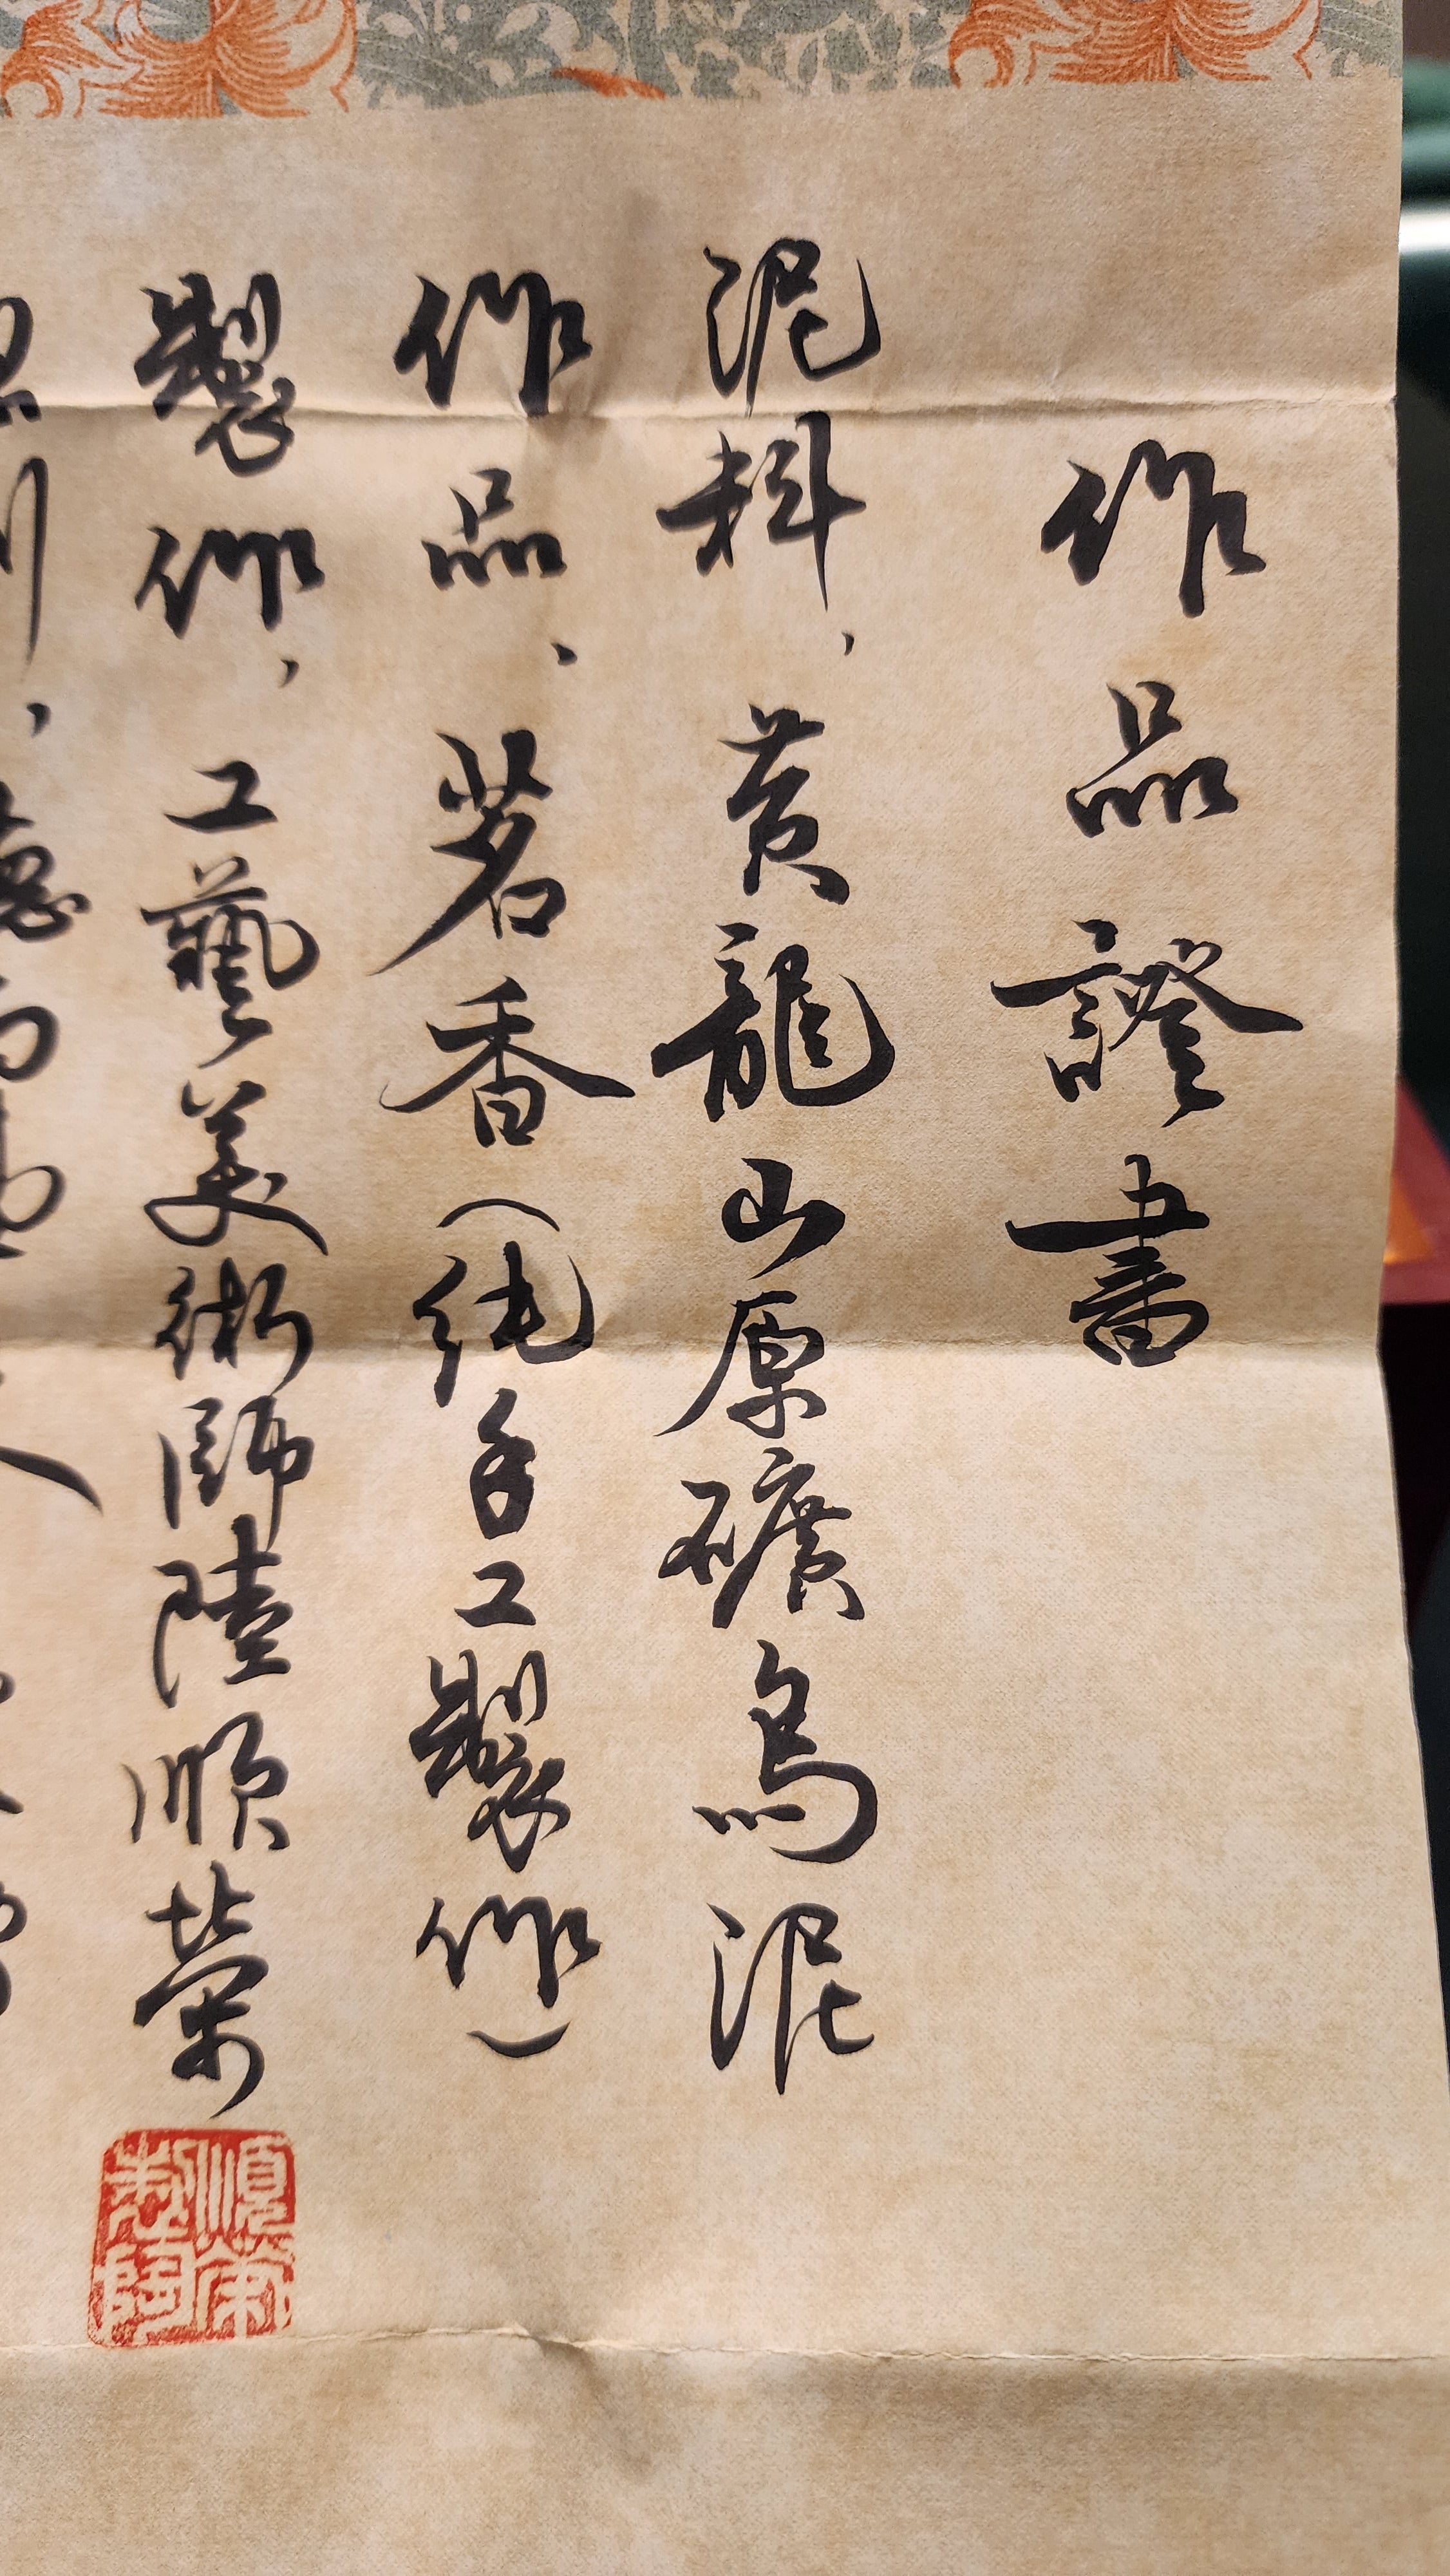 作品證書
泥料，黃龍山原礦烏泥
作品、茗香（純手工製作）
製作，工藝美術師陸順榮
順榮製陶